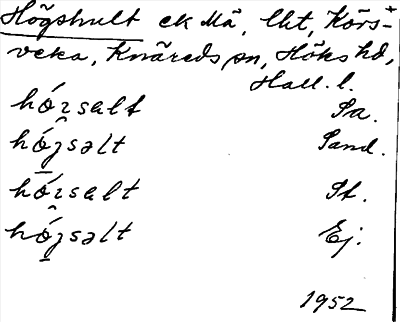 Högshult ek Mä, lht, Körs-
veka, Knäreds sn, Höks hd,
Hall. l.
hózsalt Sa.
hózsalt Sand.
hózsalt St.
hózsalt Ej.
1952